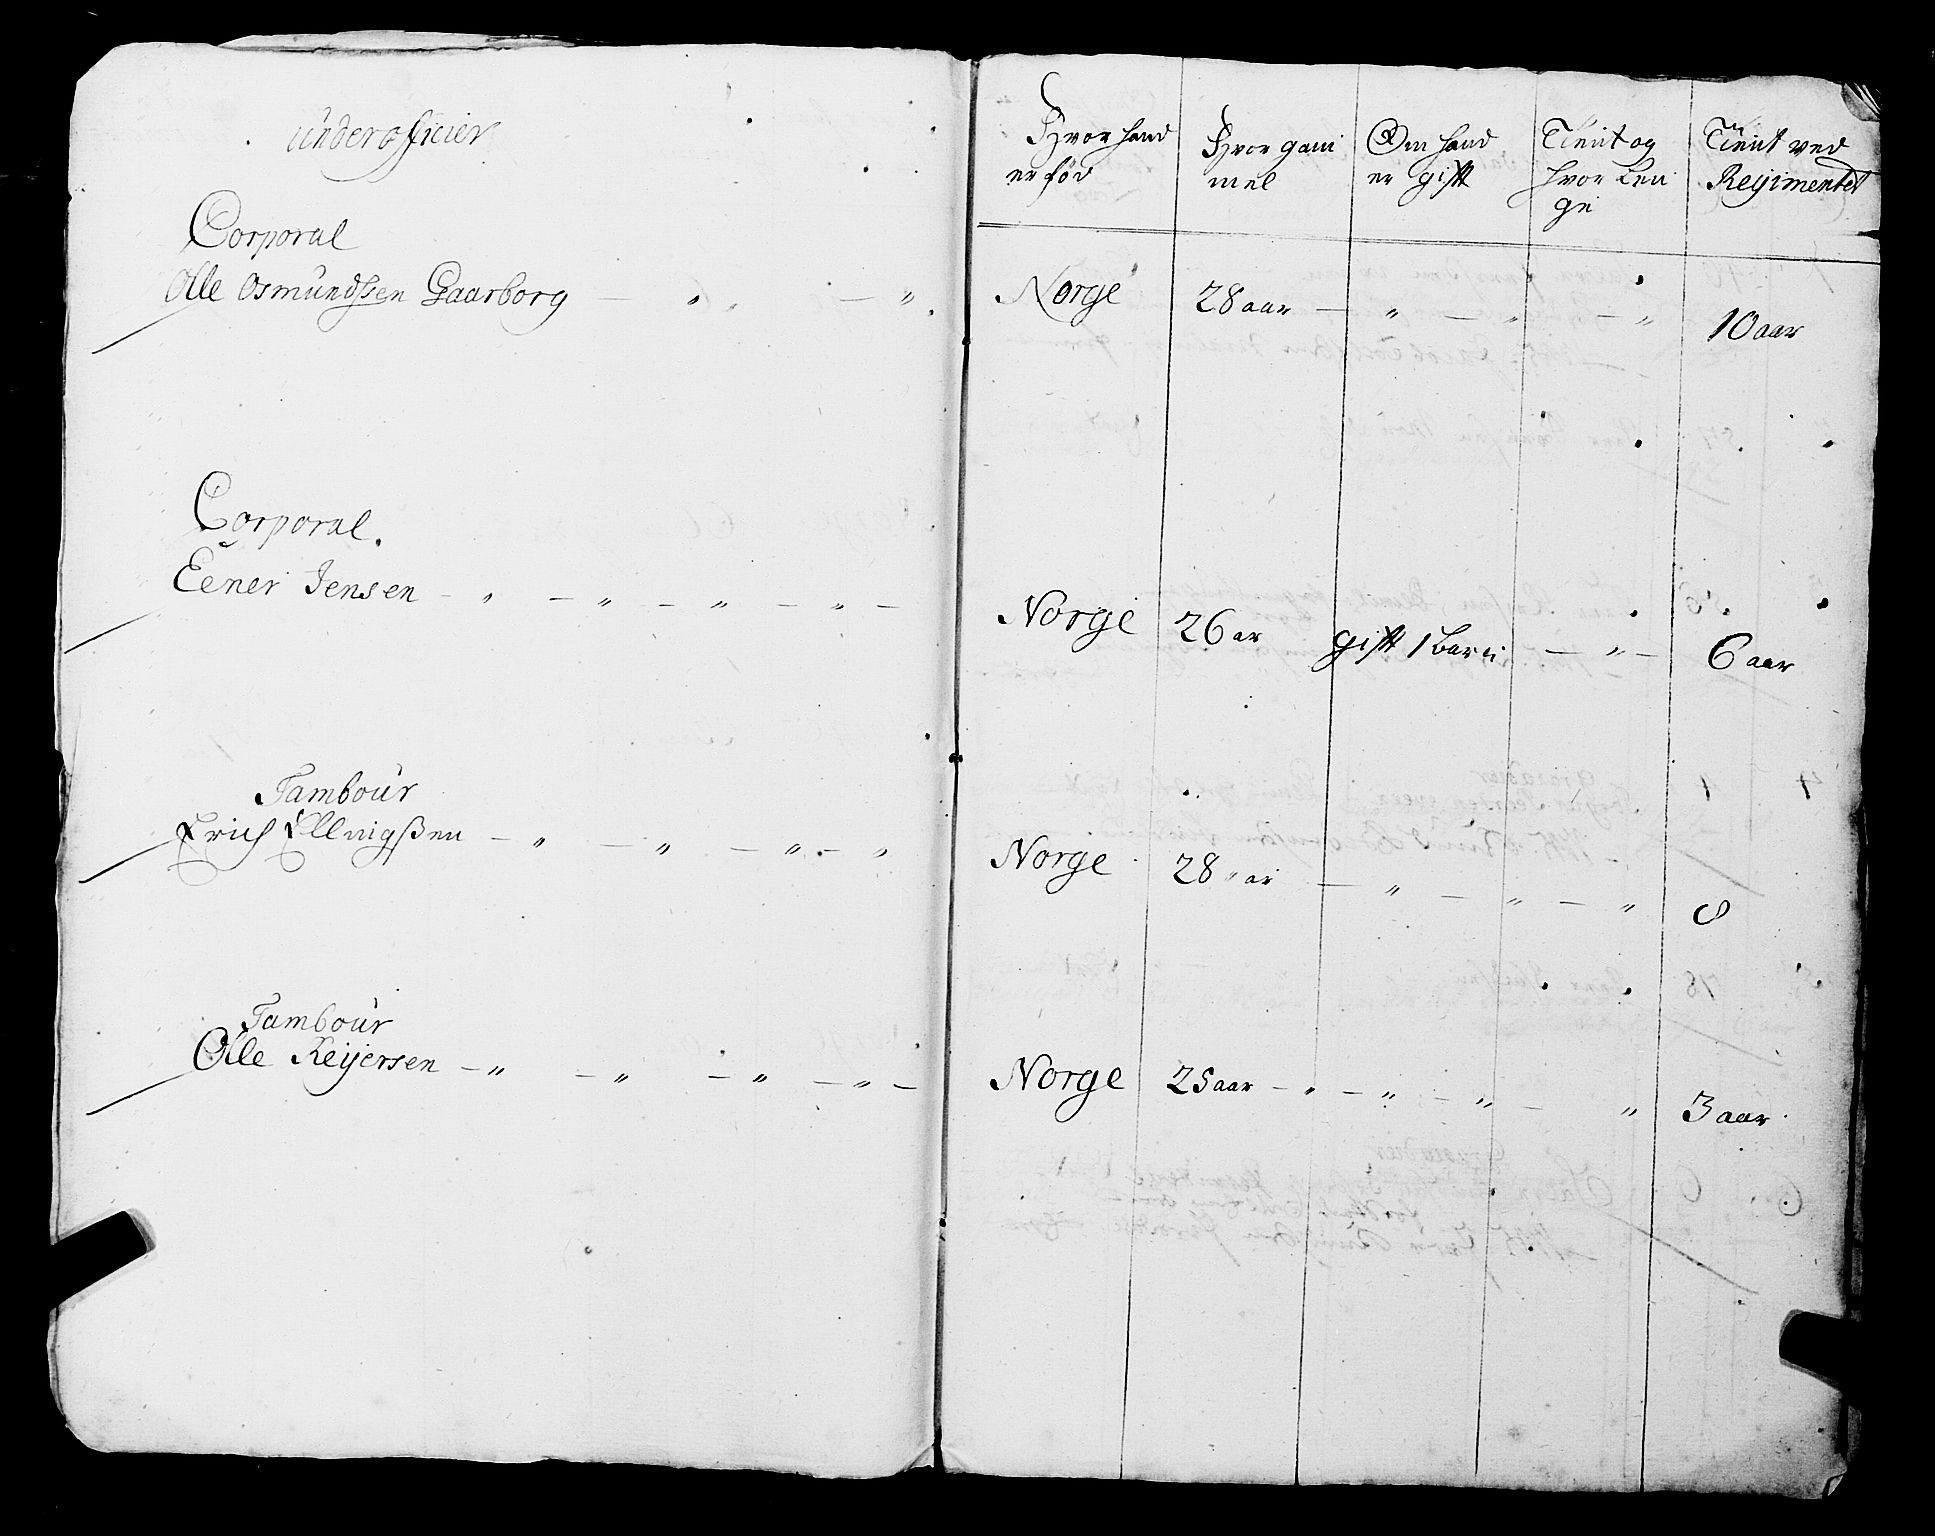 underofficier
Corporal
Olle Osmundssen Gaarborg — " — "
Corporal.
Eener Jensen - " — " — " — " —
Tambour
Erich Ellnigßen — " — " — " — "
Tambour
Olle Reijersen — " — " — " — " —
Hvor hand er fød
Hvor gam mel
Om hand er gift
Tient og hvor Len ge
Tient ved Regimentet
Norge 28 aar — " — " — " 10 aar
Norge 26 ar gift 1 barn — " — 6 aar
Norge 28 " ar — " — " — " 8
Norge 25 aar — " — " — " — " 3 aar